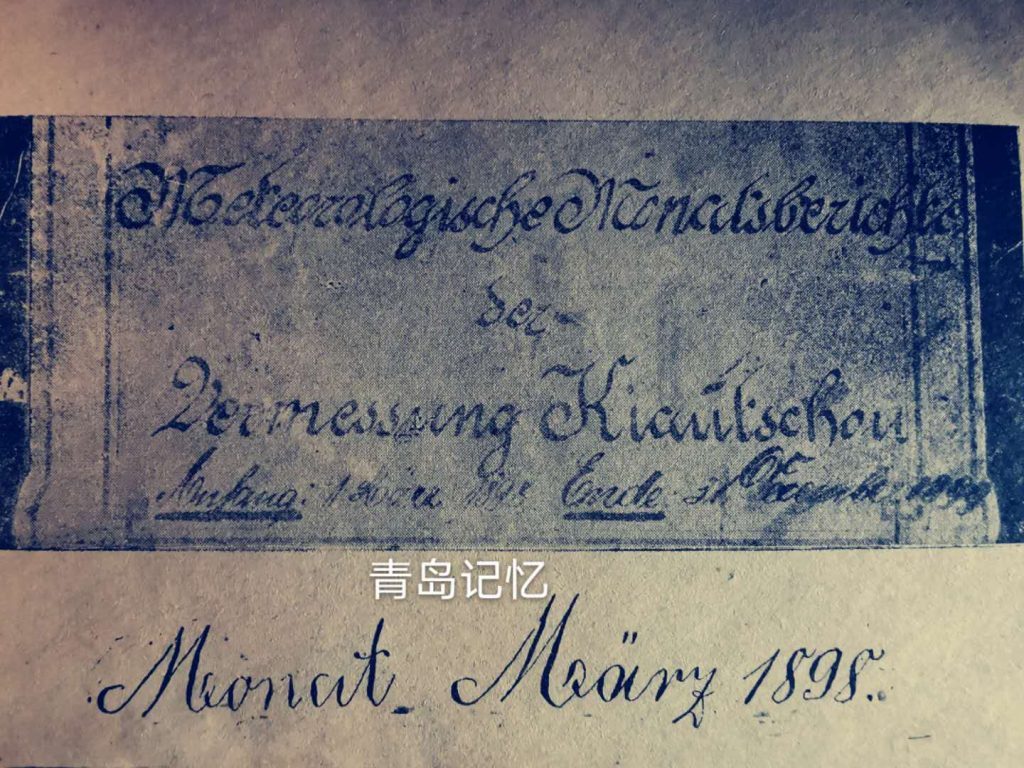 Meteorologische Monatsberichte
der
Vermessung Kiautschou
Anfang: 1 März 1898 Ende 31 Dezember
青岛记忆
Monat März 1898.